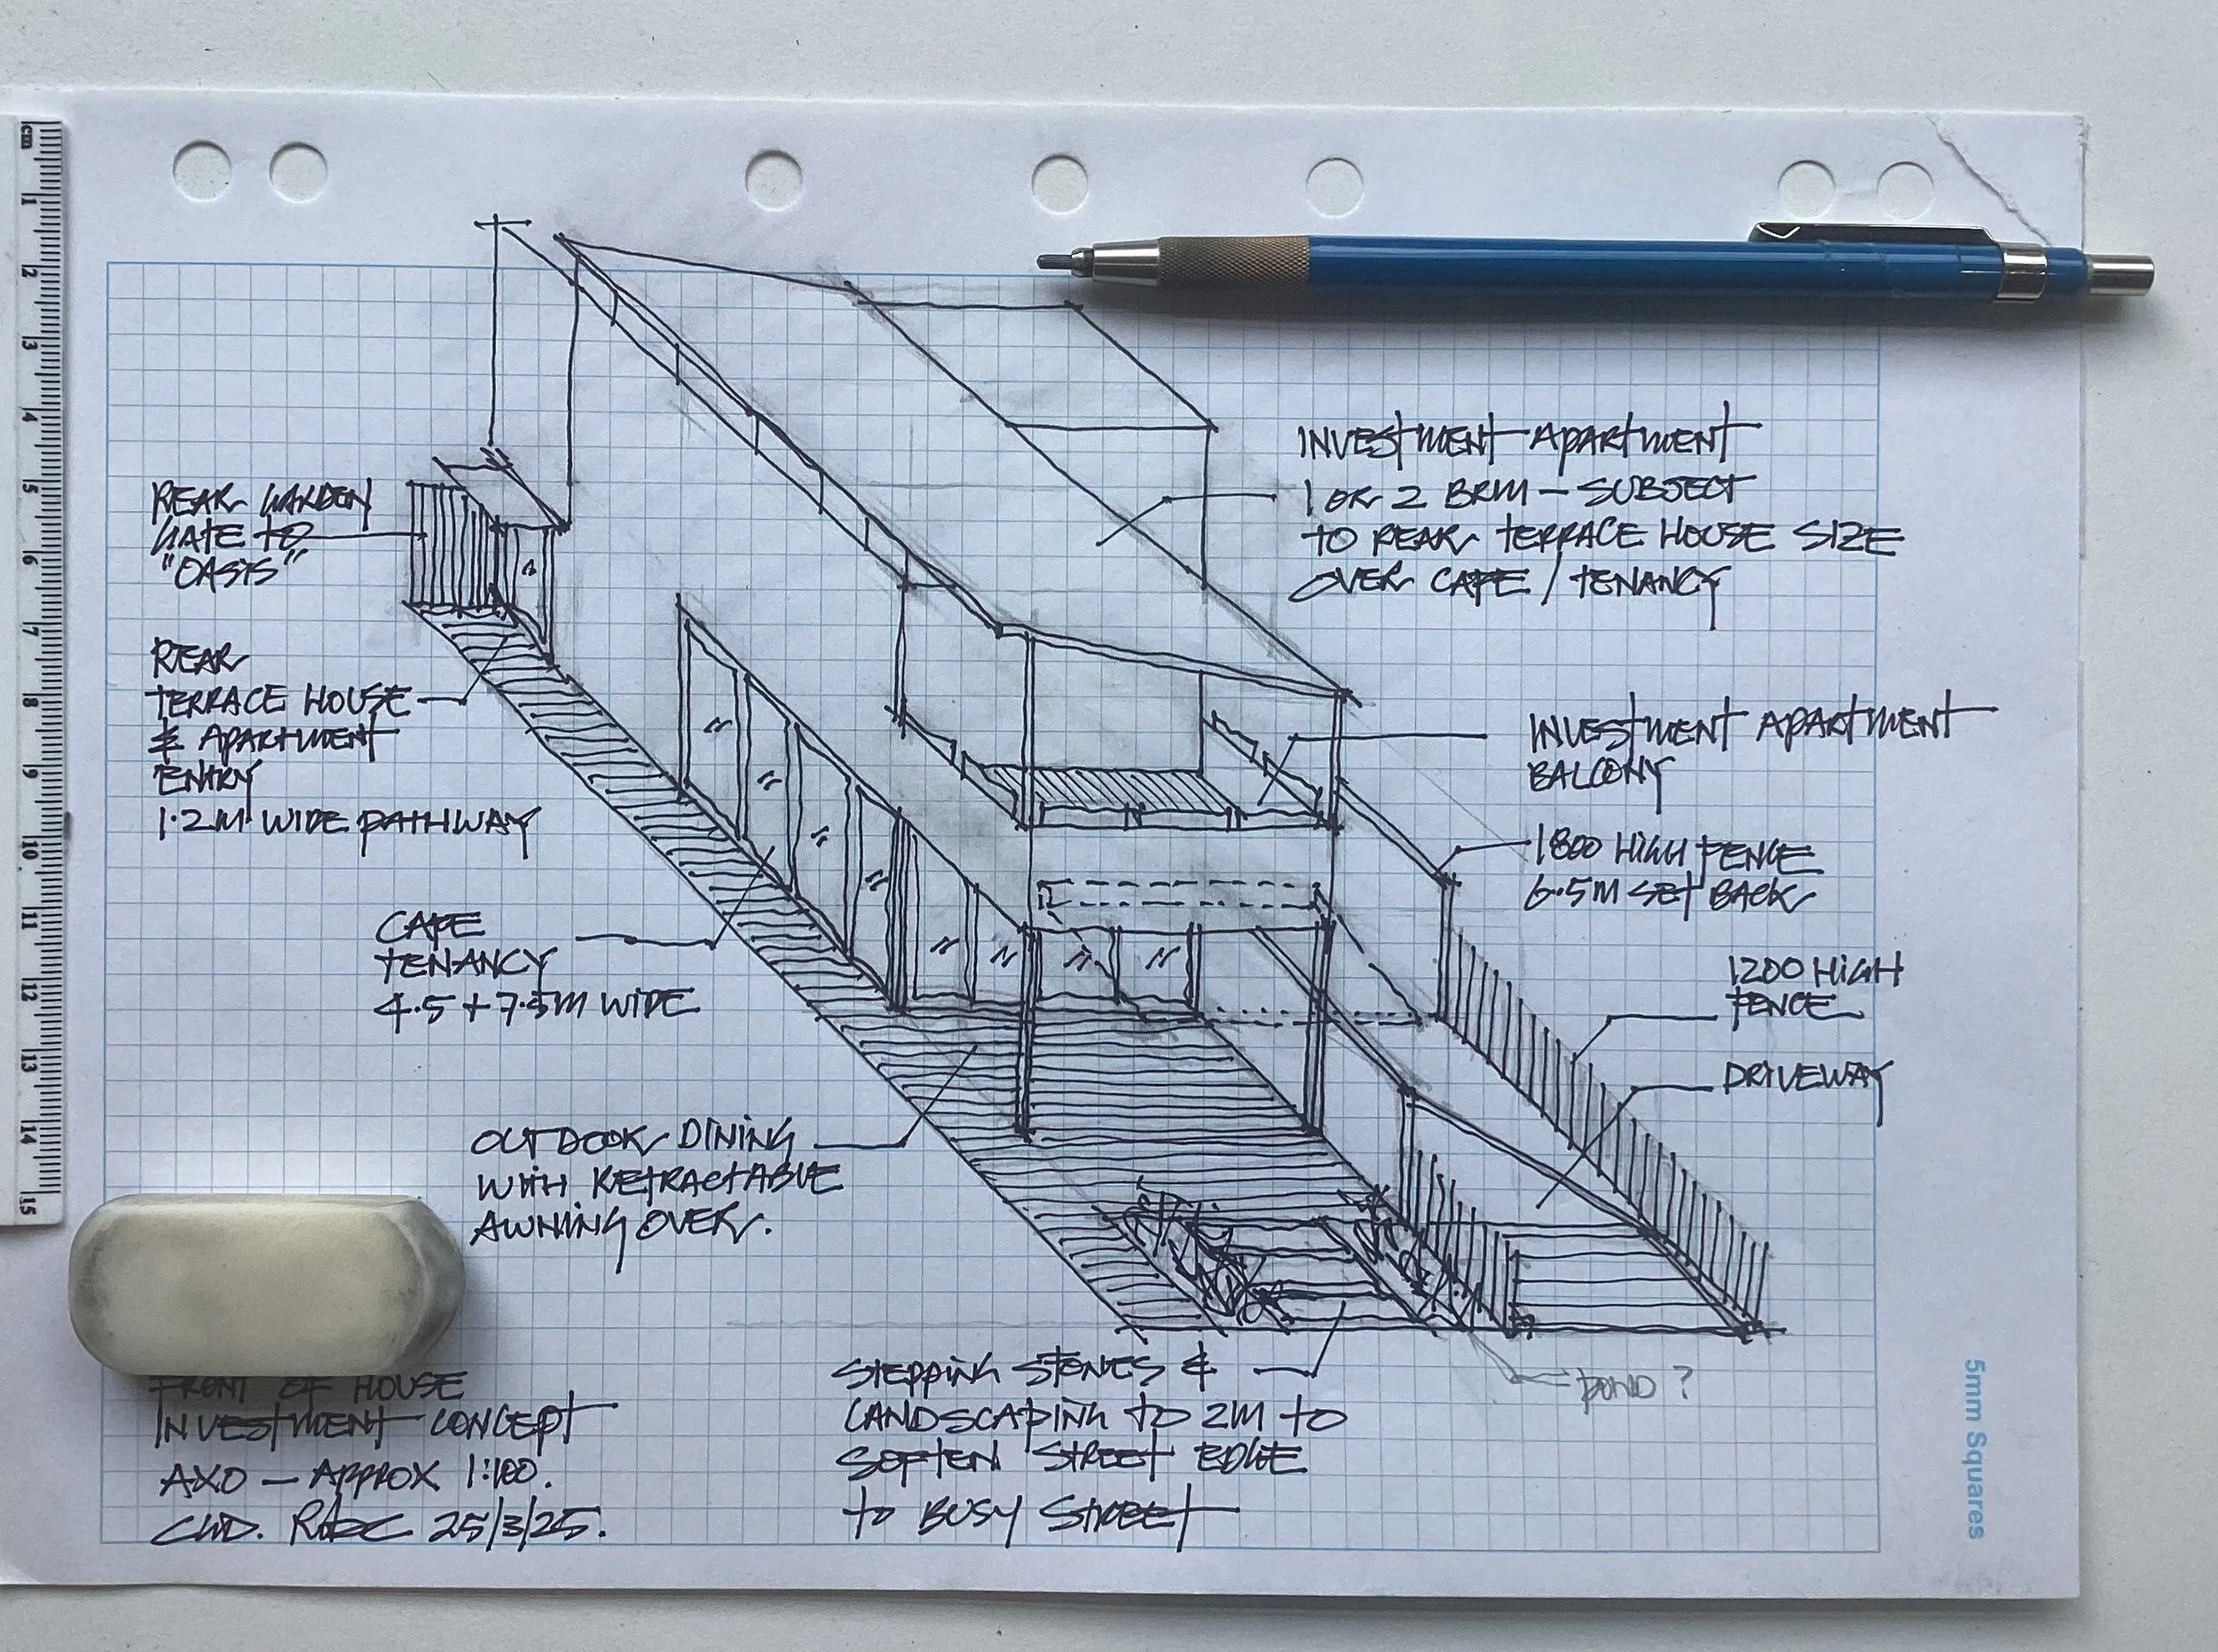 INVESTMENT APARTMENT
1 OR 2 BRM – SUBJECT
TO REAR TERRACE HOUSE SIZE
OVER CAFE / TENANCY
REAR GARDEN
GATE TO
"OASIS"
REAR
TERRACE HOUSE
& APARTMENT
ENTRY
1.2M WIDE PATHWAY
INVESTMENT APARTMENT
BALCONY
1800 HIGH FENCE
6.5M SET BACK
CAFE
TENANCY
4.5 + 7.5M WIDE
1200 HIGH
FENCE
DRIVEWAY
OUTDOOR DINING
WITH RETRACTABLE
AWNING OVER.
STEPPING STONES &
LANDSCAPING TO 2M TO
SOFTEN STREET EDGE
TO BUSY STREET
POND ?
FRONT OF HOUSE
INVESTMENT CONCEPT
AXO – APPROX 1:100.
25/3/25.
5mm Squares
cm
1
2
3
4
5
6
7
8
9
10
11
12
13
14
15